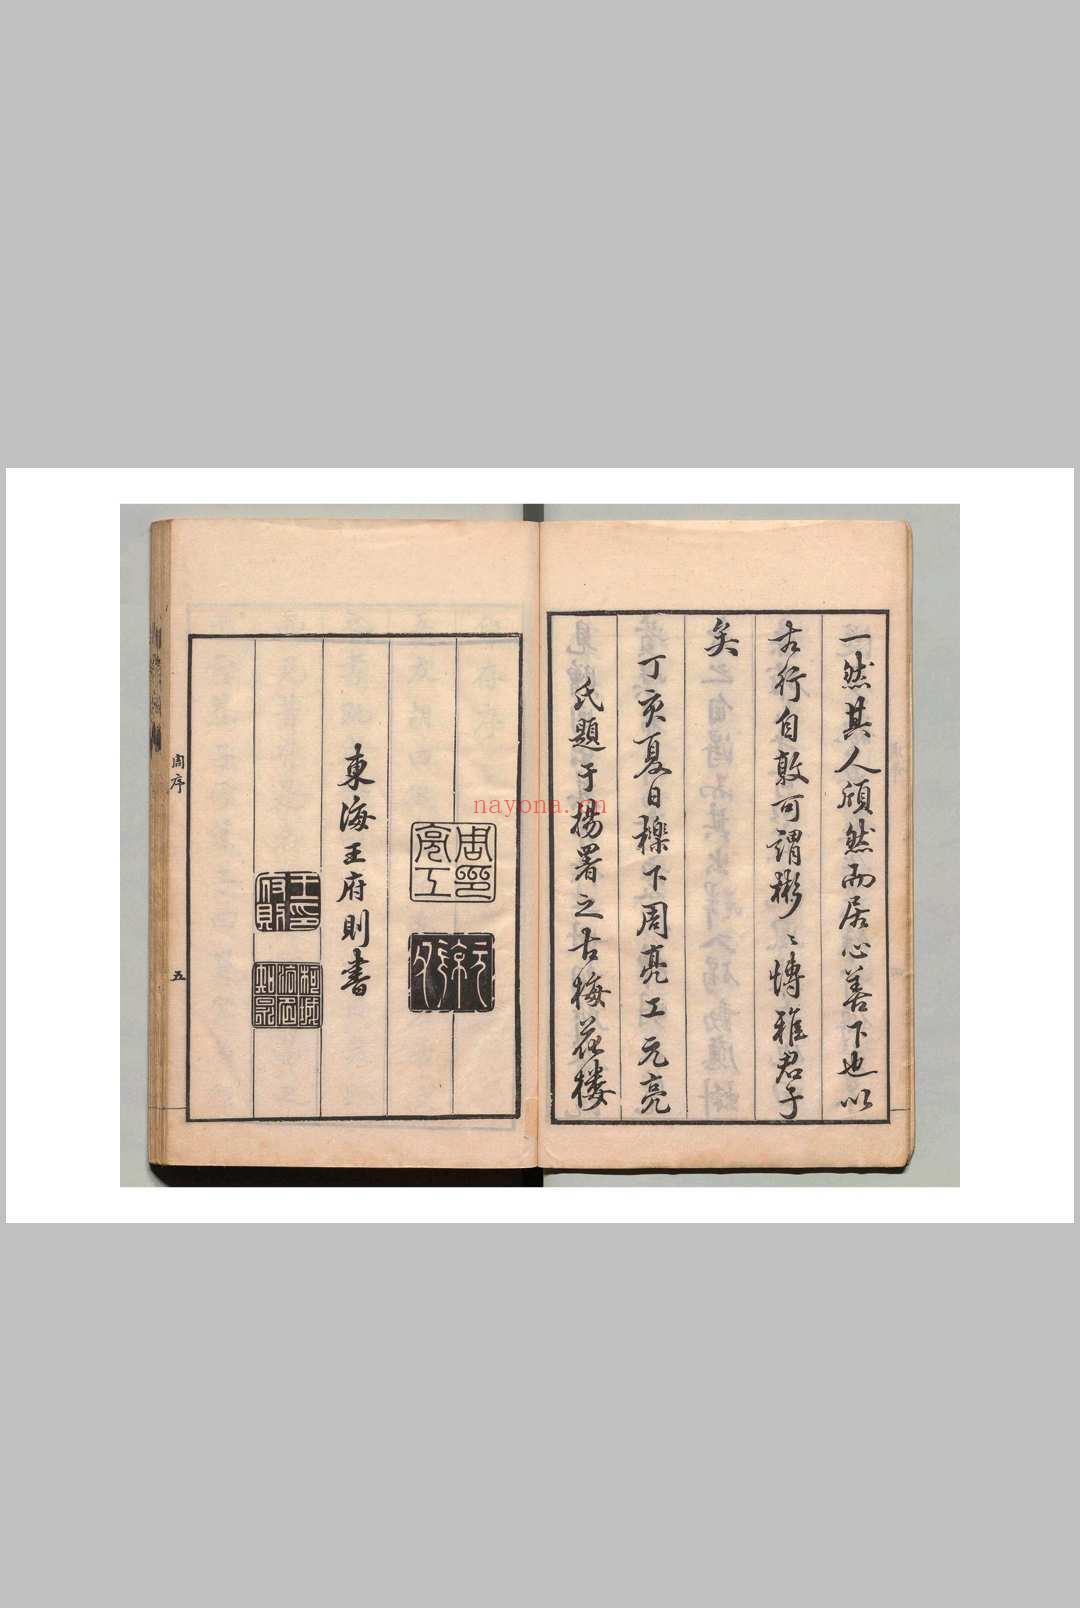 一然其人頎然而居心善下也以
古行自敦可謂彬〻博雅君子
矣
丁亥夏日櫟下周亮工元亮
氏題于揚署之古梅花樓
周亮工印
元亮
東海王府則書
王府則印
周序
五
nayona.cn